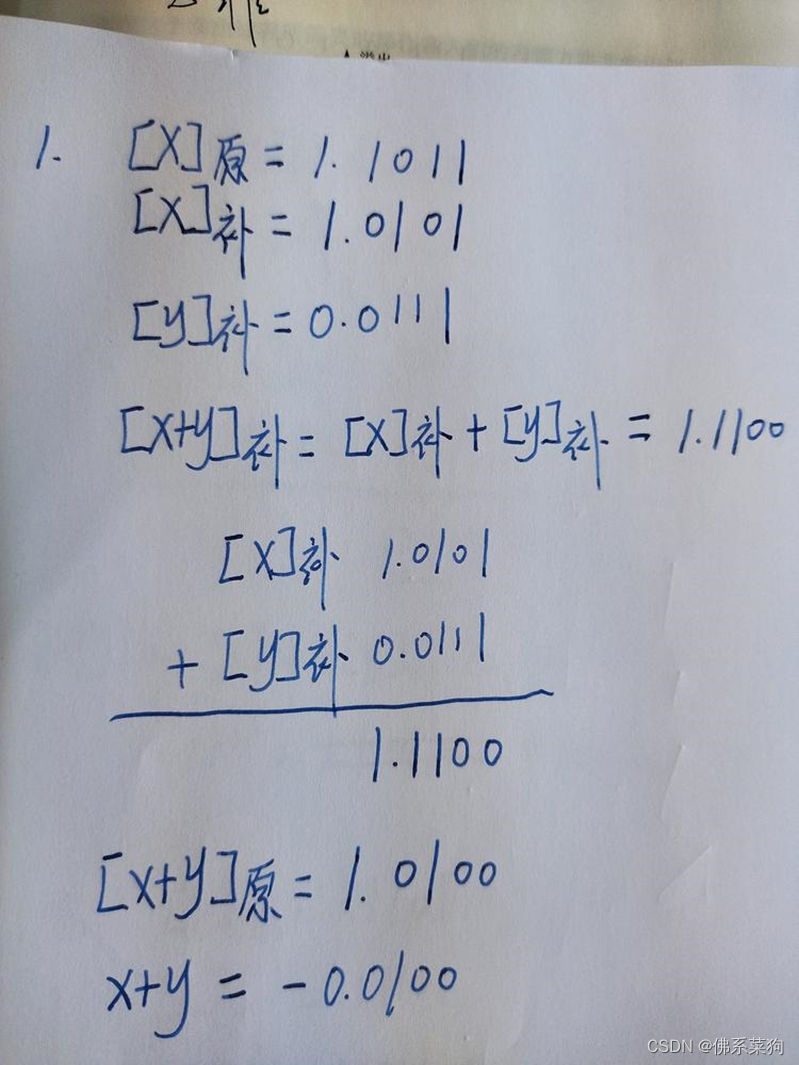 1. [X]原 = 1.1011
[X]补 = 1.0101
[y]补 = 0.0111
[x+y]补 = [x]补 + [y]补 = 1.1100
[x]补 1.0101
+ [y]补 0.0111
1.1100
[x+y]原 = 1.0100
x+y = -0.0100
CSDN @佛系菜狗